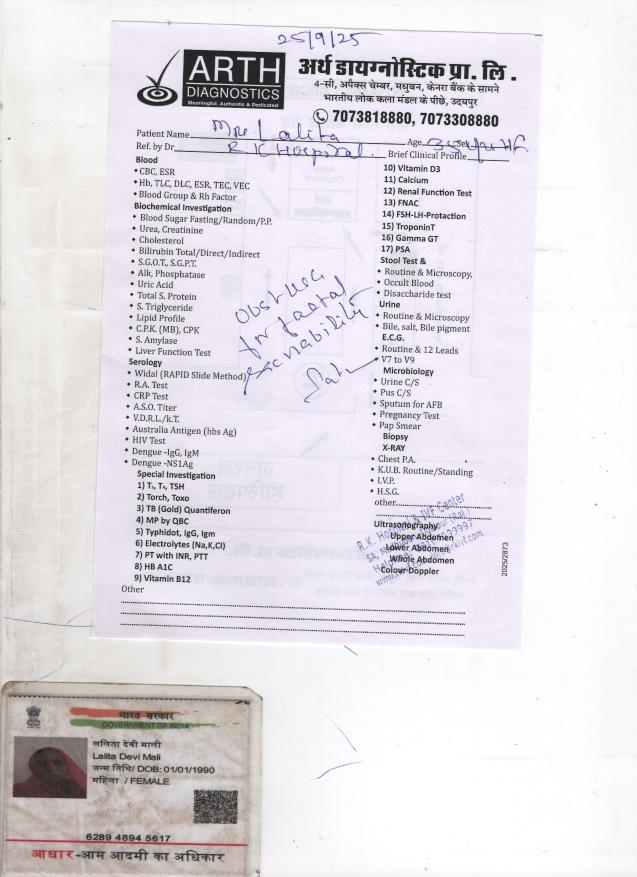 25/9/25
ARTH
DIAGNOSTICS
Meaningful, Authentic & Dedicated
अर्थ डायग्नोस्टिक प्रा. लि .
4-सी, अपैक्स चेम्बर, मधुबन, केनरा बैंक के सामने
भारतीय लोक कला मंडल के पीछे, उदयपुर
7073818880, 7073308880
Patient Name Mrs. Lalita Age 35 Sex
Ref. by Dr R K Hospital. Brief Clinical Profile
Blood
CBC, ESR
Hb, TLC, DLC, ESR, TEC, VEC
Blood Group & Rh Factor
Biochemical Investigation
Blood Sugar Fasting/Random/P.P.
Urea, Creatinine
Cholesterol
Bilirubin Total/Direct/Indirect
S.G.O.T., S.G.P.T.
Alk, Phosphatase
Uric Acid
Total S. Protein
S. Triglyceride
Lipid Profile
C.P.K. (MB), CPK
S. Amylase
Liver Function Test
Serology
Widal (RAPID Slide Method)
R.A. Test
CRP Test
A.S.O. Titer
V.D.R.L./k.T.
Australia Antigen (hbs Ag)
HIV Test
Dengue -IgG, IgM
Dengue -NS1Ag
Special Investigation
1) T₃, T₄, TSH
2) Torch, Toxo
3) TB (Gold) Quantiferon
4) MP by QBC
5) Typhidot, IgG, Igm
6) Electrolytes (Na,K,Cl)
7) PT with INR, PTT
8) HB A1C
9) Vitamin B12
Other
10) Vitamin D3
11) Calcium
12) Renal Function Test
13) FNAC
14) FSH-LH-Protaction
15) TroponinT
16) Gamma GT
17) PSA
Stool Test &
Routine & Microscopy,
Occult Blood
Disaccharide test
Urine
Routine & Microscopy
Bile, salt, Bile pigment
E.C.G.
Routine & 12 Leads
V7 to V9
Microbiology
Urine C/S
Pus C/S
Sputum for AFB
Pregnancy Test
Pap Smear
Biopsy
X-RAY
Chest P.A.
K.U.B. Routine/Standing
I.V.P.
H.S.G.
other
Ultrasonography
Upper Abdomen
Lower Abdomen
Whole Abdomen
Colour Doppler
for
R.K. Hospital & IVF Center
2025/2873
भारत सरकार
GOVERNMENT OF INDIA
ललिता देवी माली
Lalita Devi Mali
जन्म तिथि/ DOB: 01/01/1990
महिला / FEMALE
6289 4894 5617
आधार-आम आदमी का अधिकार